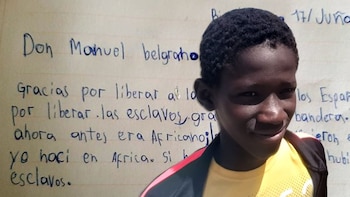 17/Juño
Don Manuel belgrano
Gracias por liberar a lo los Españ
por liberar las esclavos, gra bandera.
ahora antes era Africano, ieron
yo naci en Africa. Si hubi
esclavos.